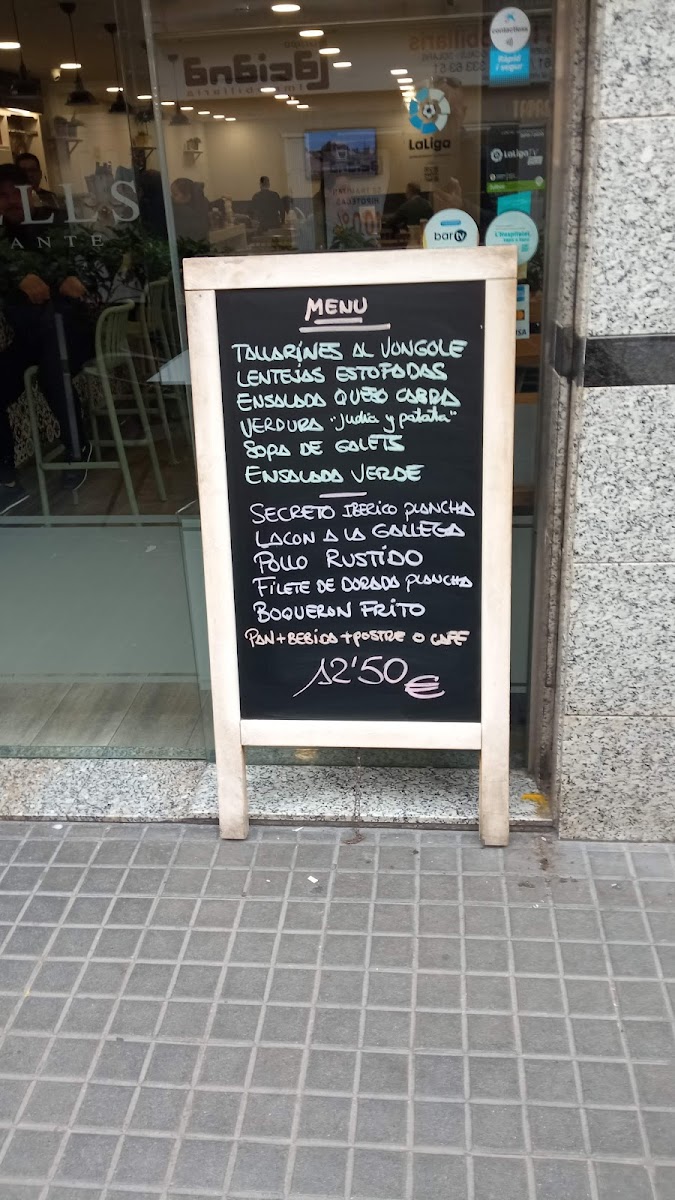 contactless
Ràpid
i segur
LaLiga
LaLigaTV
bartv
L'Hospitalet
ELLS
ANTE
VISA
MENU
TALLARÍNES AL VONGOLE
LENTEJAS ESTOFADAS
ENSALADA QUESO CABRA
VERDURA "judia y patata"
SOPA DE GALETS
ENSALADA VERDE
SECRETO IBERICO PLANCHA
LACON A LA GALLEGA
POLLO RUSTIDO
FILETE DE DORADA PLANCHA
BOQUERON FRITO
PAN+BEBIDA+POSTRE O CAFE
12'50€